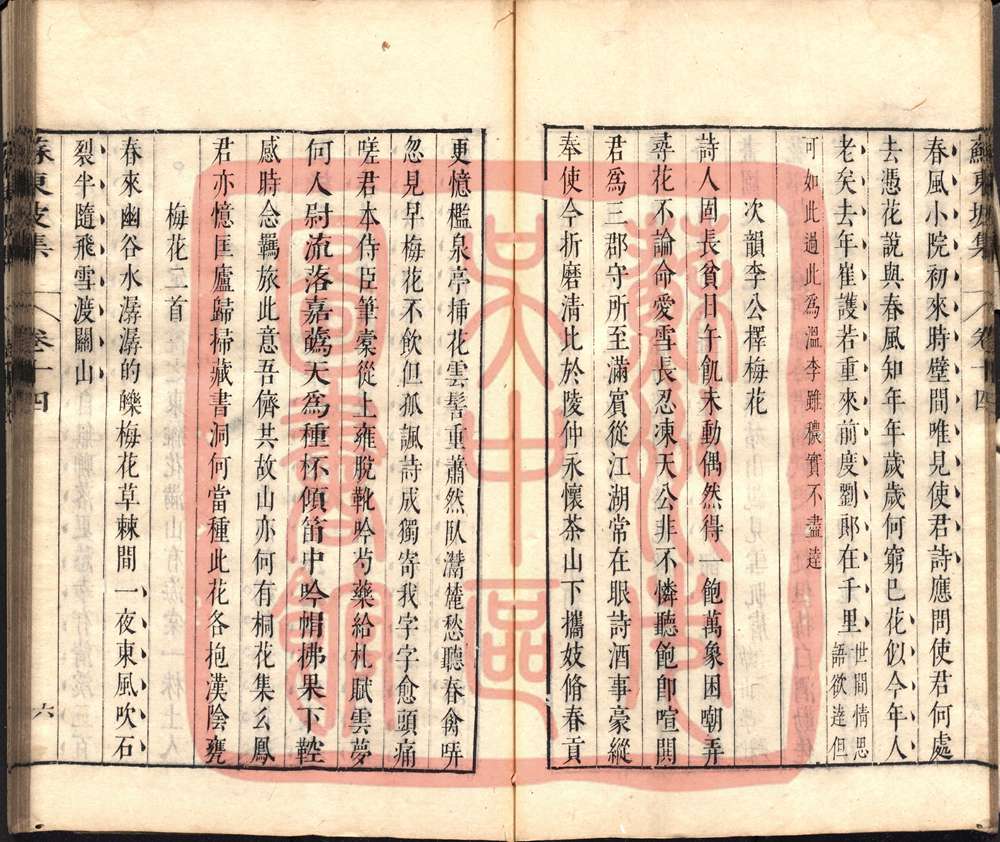 蘇東坡集 卷十四
春風小院初來時壁間唯見使君詩應問使君何處
去憑花說與春風知年年歲歲何窮已花似今年人
老矣去年崔護若重來前度劉郎在千里
世間情思
語欲達但
可如此過此為溫李雖穠實不盡達
次韻李公擇梅花
詩人固長貧日午飢未動偶然得一飽萬象困嘲弄
尋花不論命愛雪長忍凍天公非不憐聽飽卽喧鬨
君為三郡守所至滿賓從江湖常在眼詩酒事豪縱
奉使今折磨清比於陵仲永懷茶山下攜妓脩春貢
更憶檻泉亭揷花雲髻重蕭然臥灊麓愁聽春禽哢
忽見早梅花不飲但孤諷詩成獨寄我字字愈頭痛
嗟君本侍臣筆橐從上雍脫靴吟芍藥給札賦雲夢
何人尉流落嘉蘤天為種杯傾笛中吟帽拂果下鞚
感時念羈旅此意吾儕共故山亦何有桐花集么鳳
君亦憶匡廬歸掃藏書洞何當種此花各抱漢陰甕
梅花二首
春來幽谷水潺潺的皪梅花草棘間一夜東風吹石
裂半隨飛雪渡關山
蘇東坡集 卷十四 六